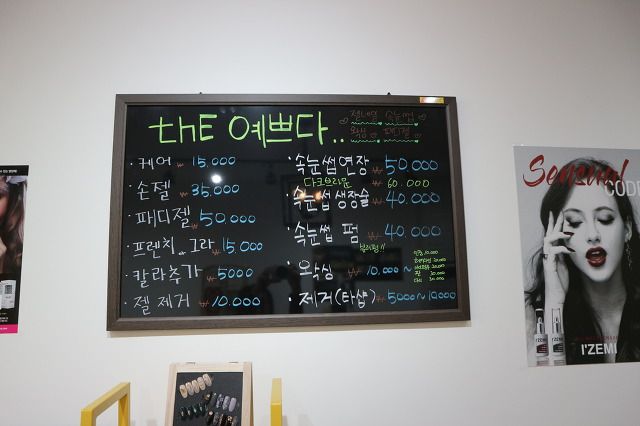 thE 예쁘다..
젤네일 속눈썹
왁싱 패디젤
· 케어 ₩ 15.000
· 손젤 ₩ 35.000
· 패디젤 ₩ 50.000
· 프렌치, 그라 ₩ 15.000
· 칼라추가 ₩ 5000
· 젤 제거 ₩ 10.000
· 속눈썹 연장 ₩ 50.000
다크브라운 ₩ 60.000
· 속눈썹 생장술 ₩ 40.000
· 속눈썹 펌 ₩ 40.000
· 왁싱 ₩ 10.000 ~
· 제거(타샵) ₩ 5000 ~ 10,000
Sensual
CODE
I'ZEMI